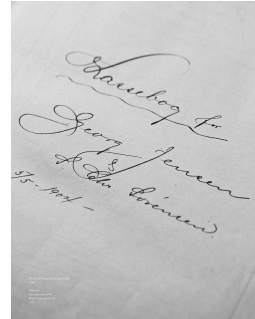 Kassebog for
Georg Jensen
& Chr. Sørensen
3/5 - 1904 -